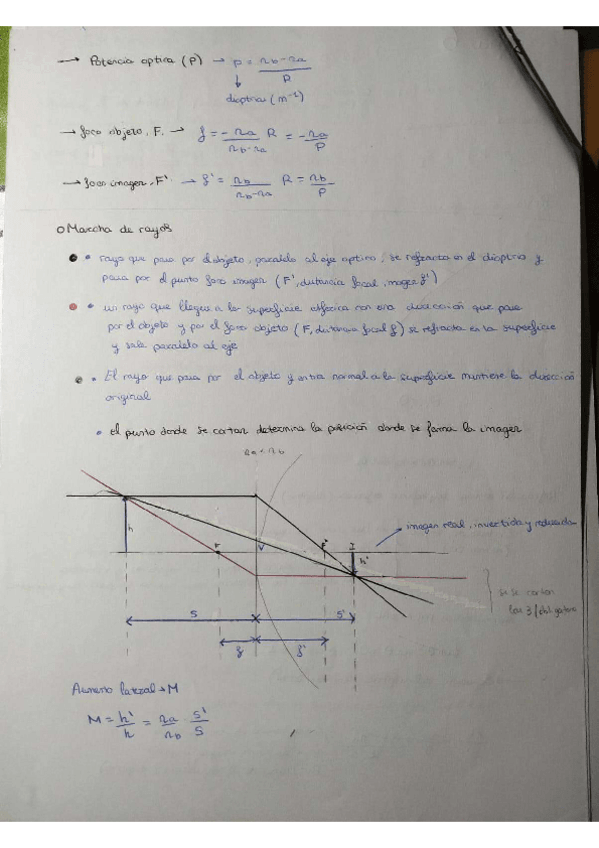 → Potencia optica (P) → P = nb-na / R
↓
dioptrias (m⁻¹)
→ foco objeto, F. → f = -na / nb-na R = -na / P
→ foco imagen, F' → f' = nb / nb-na R = nb / P
o Marcha de rayos
• rayo que pasa por el objeto, paralelo al eje optico, se refracta en el dioptrio y
pasa por el punto foco imagen (F', distancia focal imagen f')
• un rayo que llegue a la superficie esferica con una direccion que pase
por el objeto y por el foco objeto (F, distancia focal f) se refracta en la superficie
y sale paralelo al eje
• El rayo que pasa por el objeto y entra normal a la superficie mantiene la direccion
original
• el punto donde se cortan determina la posición donde se forma la imagen
na < nb
imagen real, invertida y reducida
h
F
V
F'
I
h'
si se cortan
los 3/
S
S'
f
f'
Aumento lateral → M
M = h' / h = na / nb · S' / S